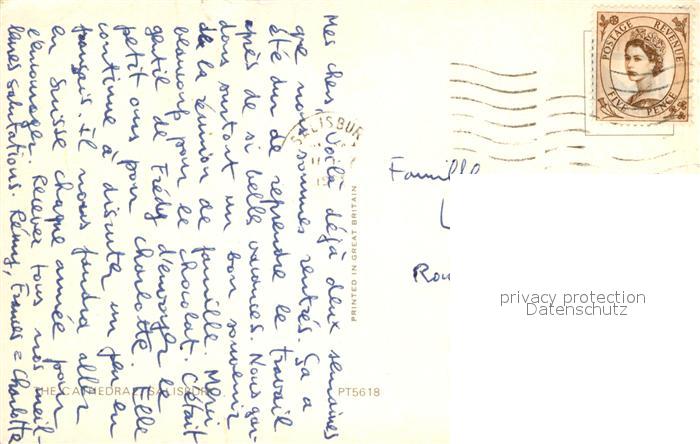 Mes chers, Voilà déjà deux semaines
que nous sommes rentrés. Ça a
été dur de reprendre le travail
après de si belles vacances. Nous gar-
dons surtout un bon souvenir
de la réunion de famille. Merci
beaucoup pour le chocolat. C'était
gentil de Frédy d'envoyer le
petit ours pour Charlotte. Elle
continue à discuter un peu en
français. Il nous faudra aller
en Suisse chaque année pour
l'encourager. Recevez tous nos meil-
leures salutations. Rémy, Frances = Charlotte
THE CATHEDRAL, SALISBURY
PT5618
PRINTED IN GREAT BRITAIN
SALISBURY
POSTAGE REVENUE
FIVE PENCE
Famille
privacy protection
Datenschutz